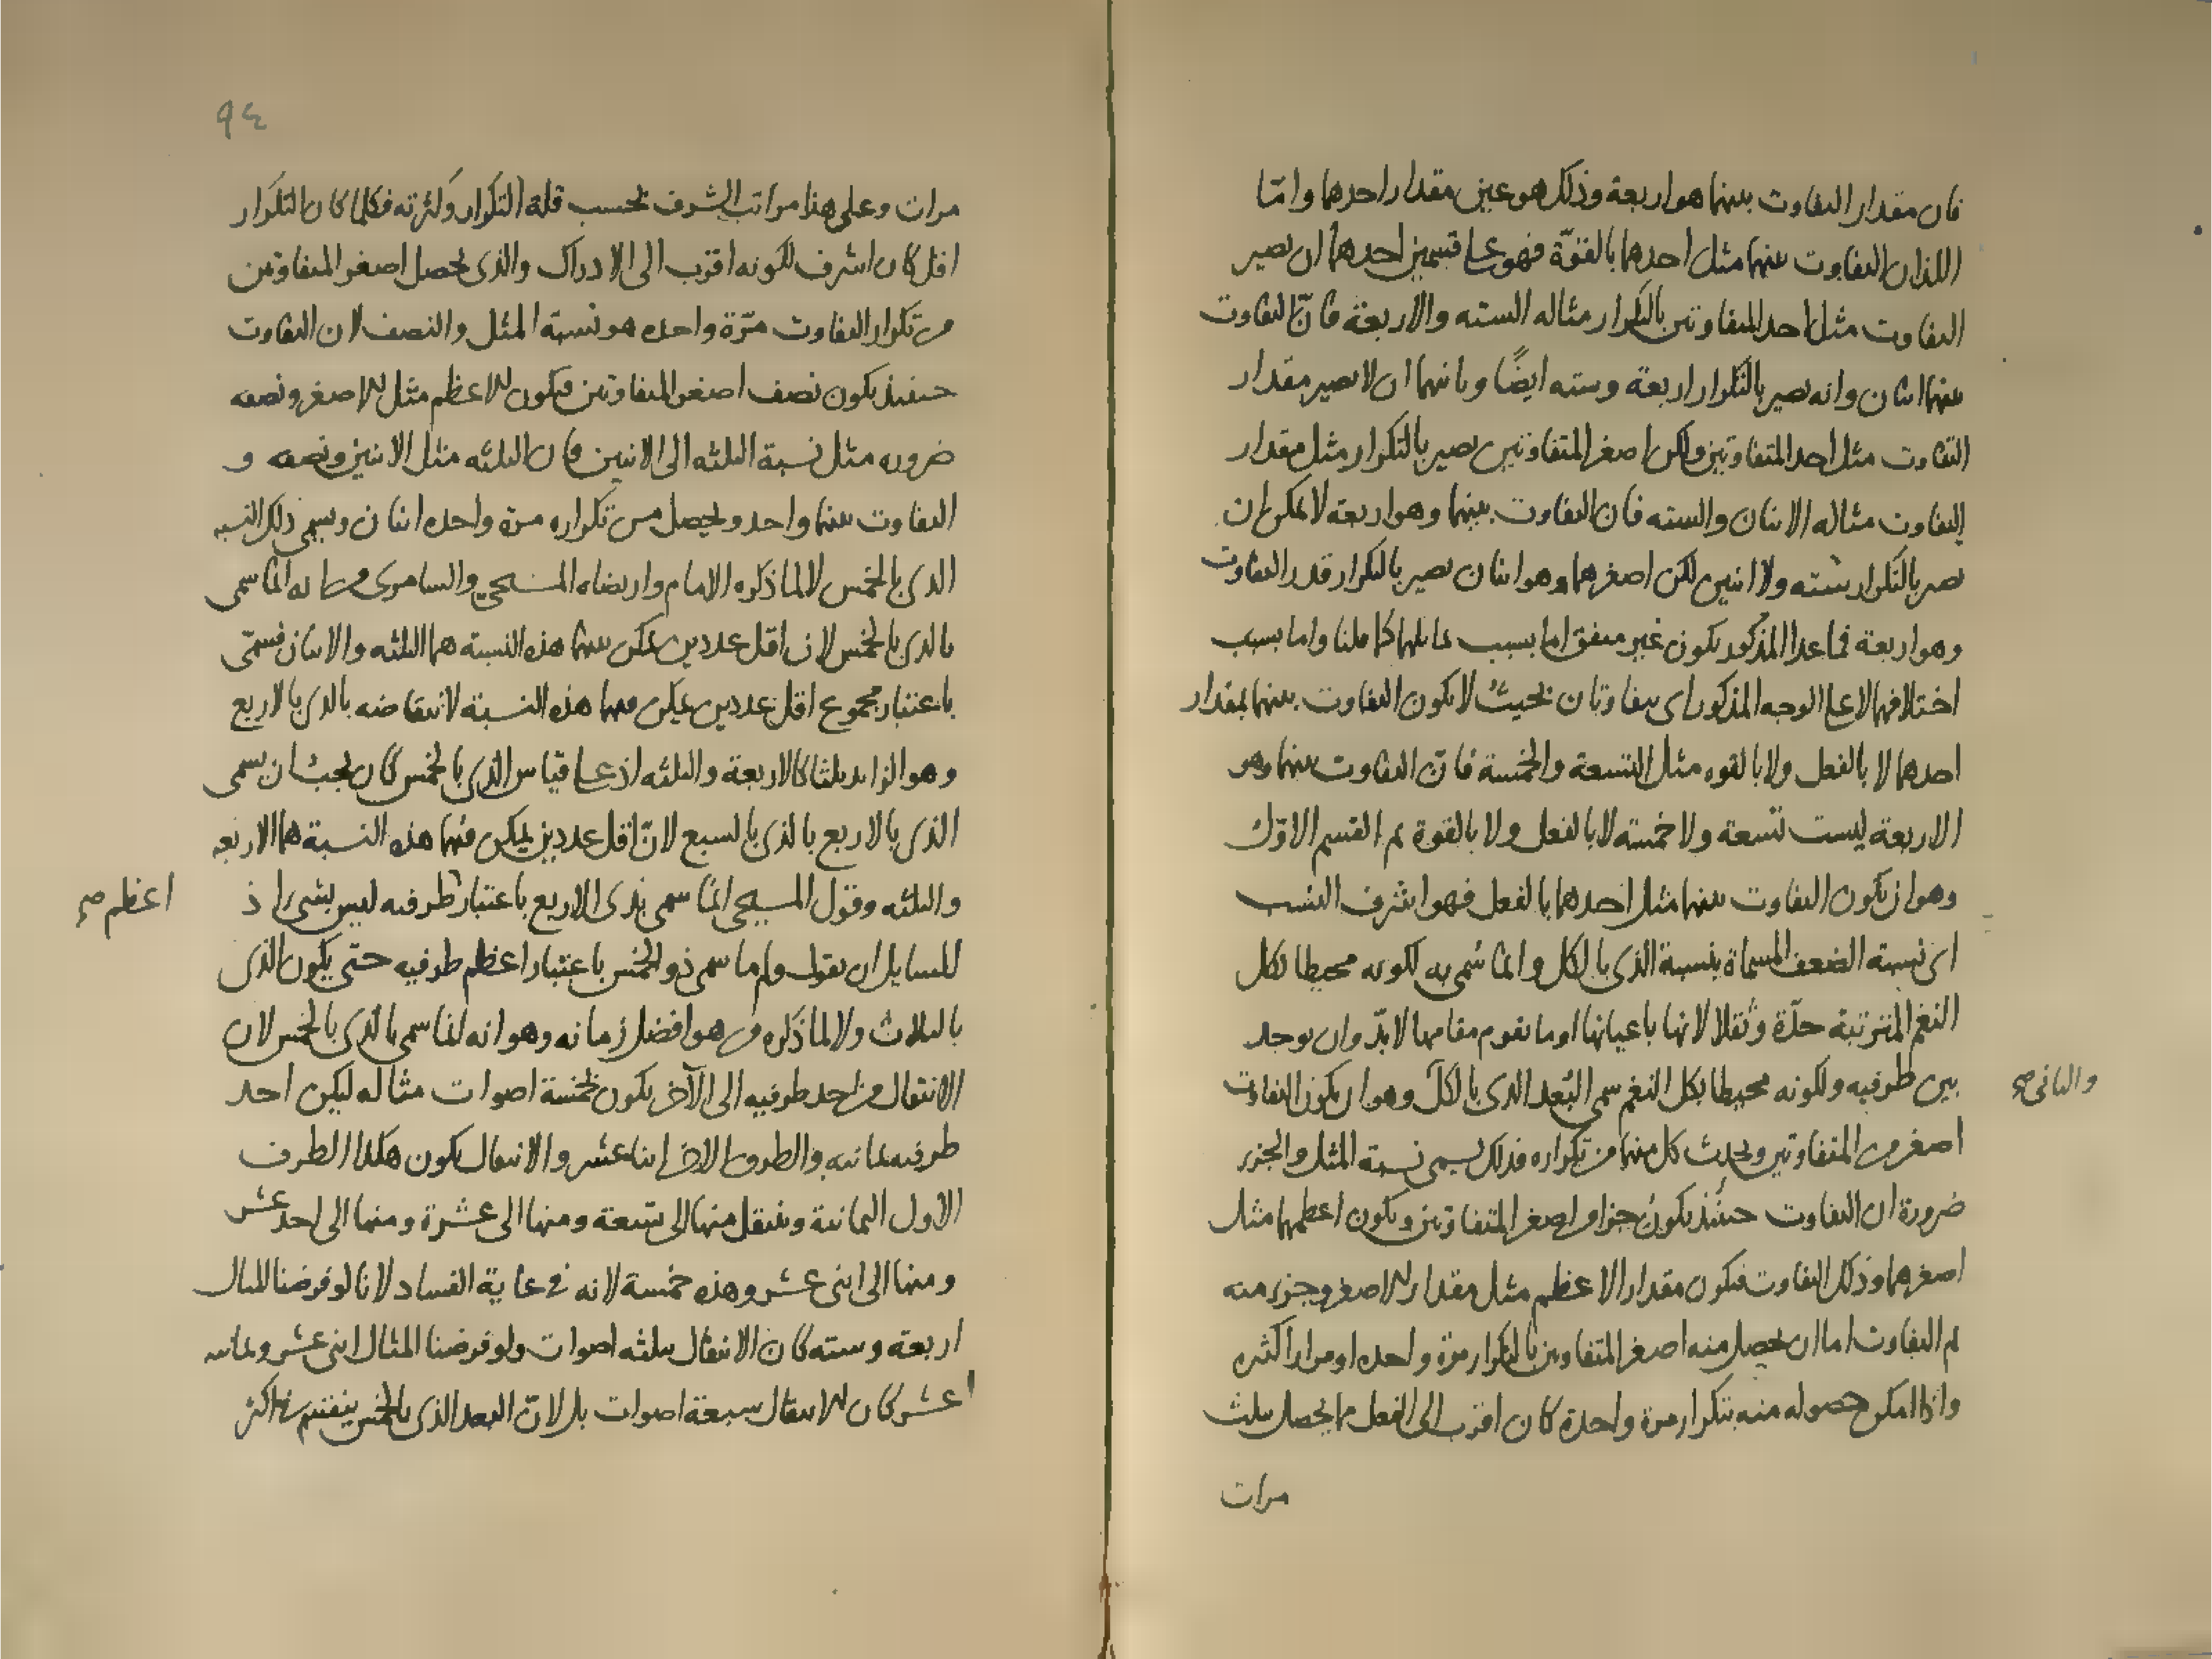 فان مقدار التفاوت بينهما هو اربعة وذلك هو عين مقدار احدهما وامّا
اللذان التفاوت بينهما مثل احدهما بالقوّة فهو على قسمين احدهما ان يصير
التفاوت مثل احد المتفاوتين بالتكرار مثاله السته والاربعة فانّ التفاوت
بينهما اثنان وانه يصير بالتكرار اربعة وسته ايضًا وثانيهما ان لا يصير مقدار
التفاوت مثل احد المتفاوتين ولكن اصغر المتفاوتين يصير بالتكرار مثل مقدار
التفاوت مثاله الاثنان والسته فان التفاوت بينهما وهو اربعة لا يمكن ان
يصير بالتكرار سته ولا اثنين لكن اصغرهما وهو اثنان يصير بالتكرار قدر التفاوت
وهو اربعة فما عدا المذكور يكون غير متفق اما بسبب تماثلهما كما قلنا واما بسبب
اختلافهما لا على الوجه المذكور اى يتفاوتان بحيث لا يكون التفاوت بينهما بمقدار
احدهما لا بالفعل ولا بالقوه مثل التسعة والخمسة فانّ التفاوت بينهما وهو
الاربعة ليست تسعة ولا خمسته لا بالفعل ولا بالقوة ثم القسم الاوّل
وهو ان يكون التفاوت بينهما مثل احدهما بالفعل فهو اشرف النسب
اى نسبة الضعف المسماة بنسبة الذى بالكل وانما سُمى به لكونه محيطا بكل
النغم المترتبة حدّة وثقلا لانها باعيانها او ما يقوم مقامها لا بدّ وان يوجد
بين طرفيه ولكونه محيطا بكل النغم سمى البُعد الذى بالكلّ وهو ان يكون التفاوت
والثانى صح
اصغر من المتفاوتين ويحدث كل منهما من تكراره فذلك يسمى نسبة المثل والجزء
ضرورة ان التفاوت حينئذ يكون جزءا من اصغر المتفاوتين ويكون اعظمهما مثل
اصغرهما وذلك التفاوت فيكون مقدار الاعظم مثل مقدار الاصغر وجزء منه
ثم التفاوت اما ان يحصل منه اصغر المتفاوتين بالتكرار مرة واحده او مرارا كثيره
واذا امكن حصوله منه بتكرار مرة واحدة كان اقرب الى الفعل مما يحصل بثلث
مرات
٩٤
مرات وعلى هذا مراتب الشرف بحسب قلة التكرار وكثرته فكلما كان التكرار
اقل كان اشرف لكونه اقرب الى الادراك والذى يحصل اصغر المتفاوتين
من تكرار التفاوت مرّة واحده هو نسبة المثل والنصف لان التفاوت
حينئذ يكون نصف اصغر المتفاوتين فيكون الاعظم مثل الاصغر ونصفه
ضروره مثل نسبة الثلثه الى الاثنين فان الثلثه مثل الاثنين ونصفه و
التفاوت بينهما واحد ويحصل من تكراره مرة واحده اثنان ويسمى ذلك النسبه
الذى بالخمس لا لما ذكره الامام وارتضاه المسيحى والسامرى من انه انما سمى
بالذى بالخمس لان اقل عددين يمكن بينهما هذه النسبة هما الثلثه والاثنان فسمّى
باعتبار مجموع اقل عددين يمكن فيهما هذه النسبة لانتقاضه بالذى بالاربع
وهو الزايد بثلثا كالاربعة والثلثه اذ على قياس الذى بالخمس كان يجب ان يسمى
الذى بالاربع بالذى بالسبع لانّ اقل عددين يمكن فيهما هذه النسبة هما الاربعه
والثلثه وقول المسيحى انما سمى بذى الاربع باعتبار طرفيه ليس بشئ اذ
اعظم صح
للسايل ان يقول ولم ما سمى ذو الخمس باعتبار اعظم طرفيه حتّى يكون الذى
بالثلاث ولا لما ذكره من هو افضل زمانه وهو انه انما سمى بالذى بالخمس لان
الانتقال من احد طرفيه الى الآخر يكون بخمسة اصوات مثاله ليكن احد
طرفيه ثمانيه والطرف الاخر اثنا عشر والانتقال يكون هكذا الطرف
الاول الثمانية وينتقل منها الى تسعة ومنها الى عشرة ومنها الى احد عشر
ومنها الى اثنى عشر وهذه خمسة لانه فى غاية الفساد لانا لو فرضنا المثال
اربعة وسته كان الانتقال بثلثه اصوات ولو فرضنا المثال اثنى عشر وثمانيه
عشر كان الانتقال سبعة اصوات بل لانّ البعد الذى بالخمس ينقسم اكثر